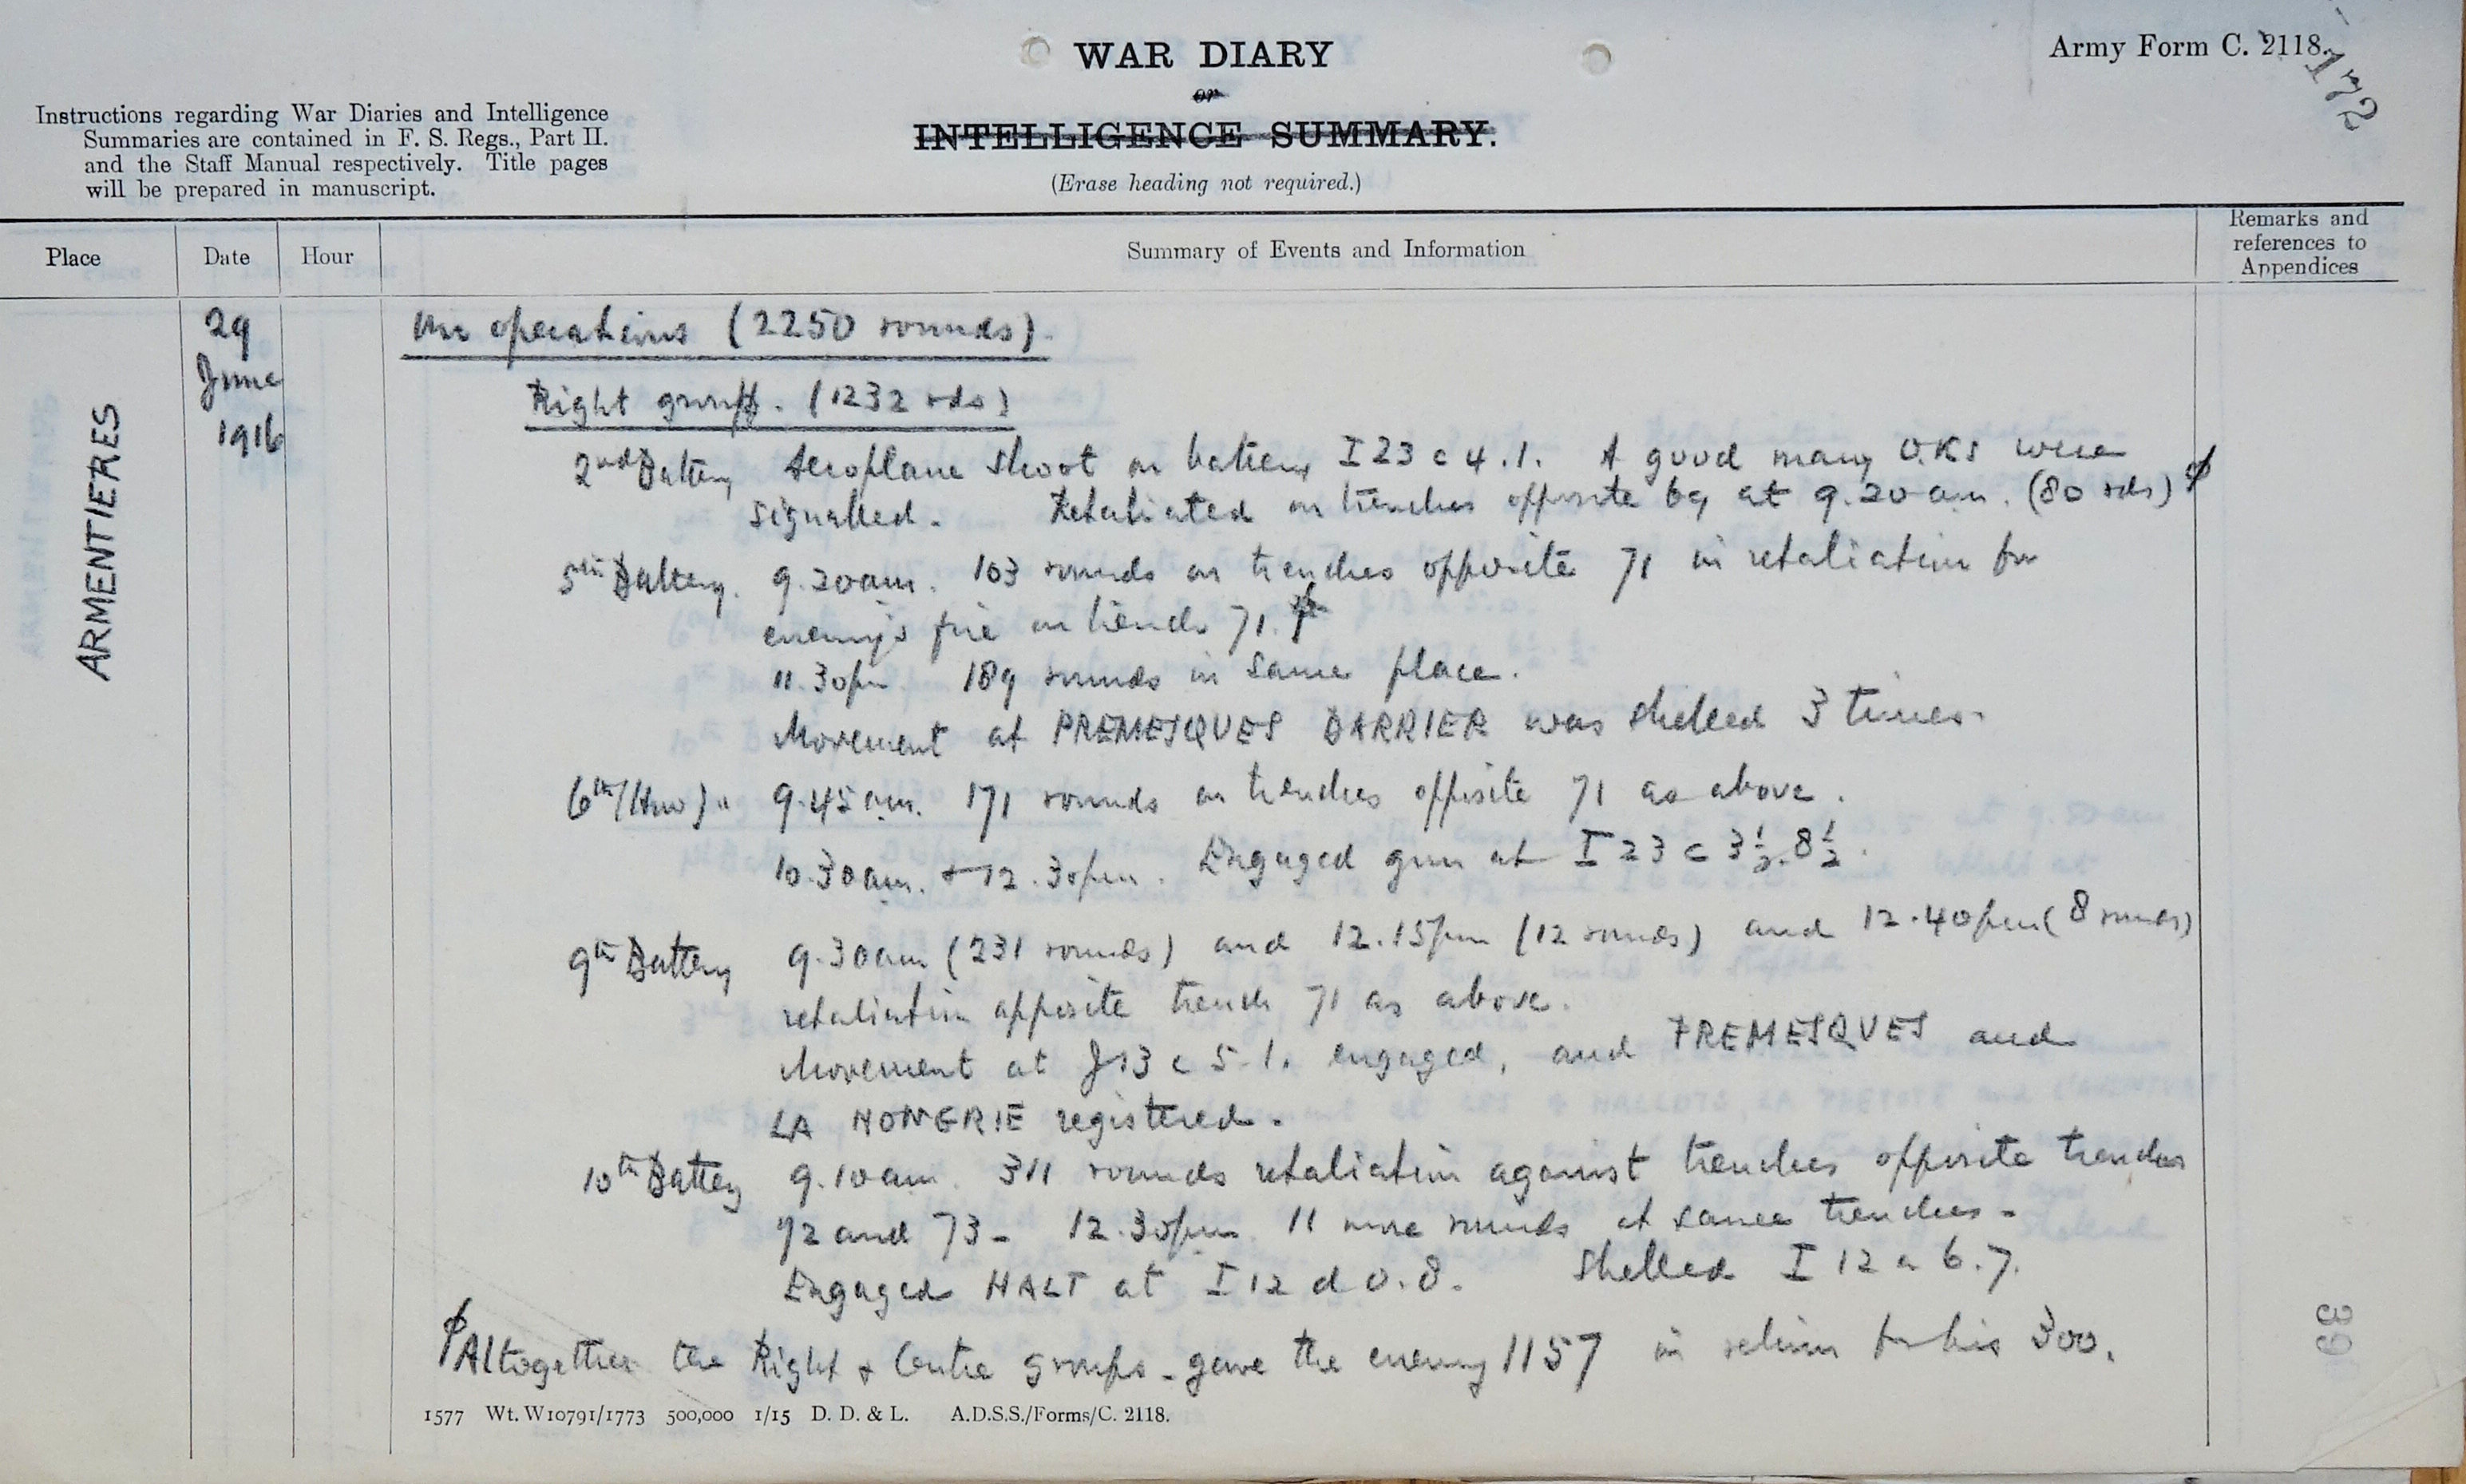 WAR DIARY
or
INTELLIGENCE SUMMARY.
(Erase heading not required.)
Army Form C. 2118.
172
Instructions regarding War Diaries and Intelligence
Summaries are contained in F. S. Regs., Part II.
and the Staff Manual respectively. Title pages
will be prepared in manuscript.
Place
Date
Hour
Summary of Events and Information
Remarks and
references to
Appendices
ARMENTIERES
29
June
1916
Our operations (2250 rounds).
Right group. (1232 rds)
2nd Battery Aeroplane shoot on battery I 23 c 4.1. A good many O.KS were
signalled. Retaliated on trenches opposite 69 at 9.20 am. (80 rds) ϕ
5th Battery. 9.20am. 103 rounds on trenches opposite 71 in retaliation for
enemy's fire on trench 71.
11.30pm 189 rounds in same place.
Movement at PREMESQUES BARRIER was shelled 3 times.
6th (How) " 9.45 am. 171 rounds on trenches opposite 71 as above.
10.30am. + 12.30pm. Engaged gun at I 23 c 3½.8½.
9th Battery 9.30am (231 rounds) and 12.15pm (12 rounds) and 12.40pm (8 rounds)
retaliation opposite trench 71 as above.
Movement at J13 c 5.1. engaged, and PREMESQUES and
LA HONGRIE registered.
10th Battery 9.10am. 311 rounds retaliation against trenches opposite trenches
72 and 73. 12.30pm 11 more rounds at same trenches.
Engaged HALT at I 12 d 0.8. Shelled I 12 a 6.7.
ϕ Altogether the Right & Centre groups gave the enemy 1157 in return for his 300.
39
1577 Wt. W10791/1773 500,000 1/15 D. D. & L. A.D.S.S./Forms/C. 2118.